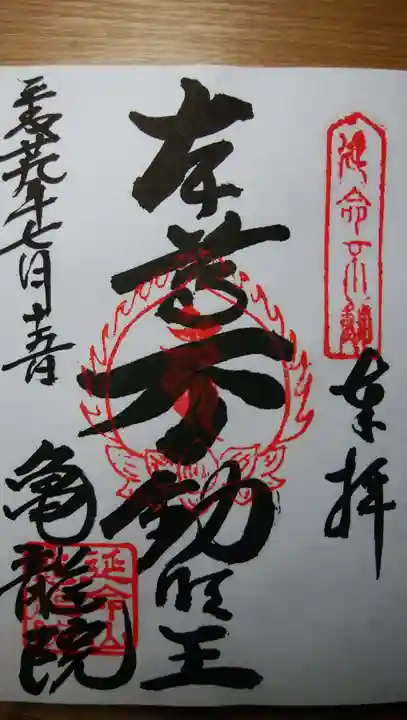 延命不動
奉拝
本尊不動明王
平成廿九年七月十五日
亀龍院
延命山